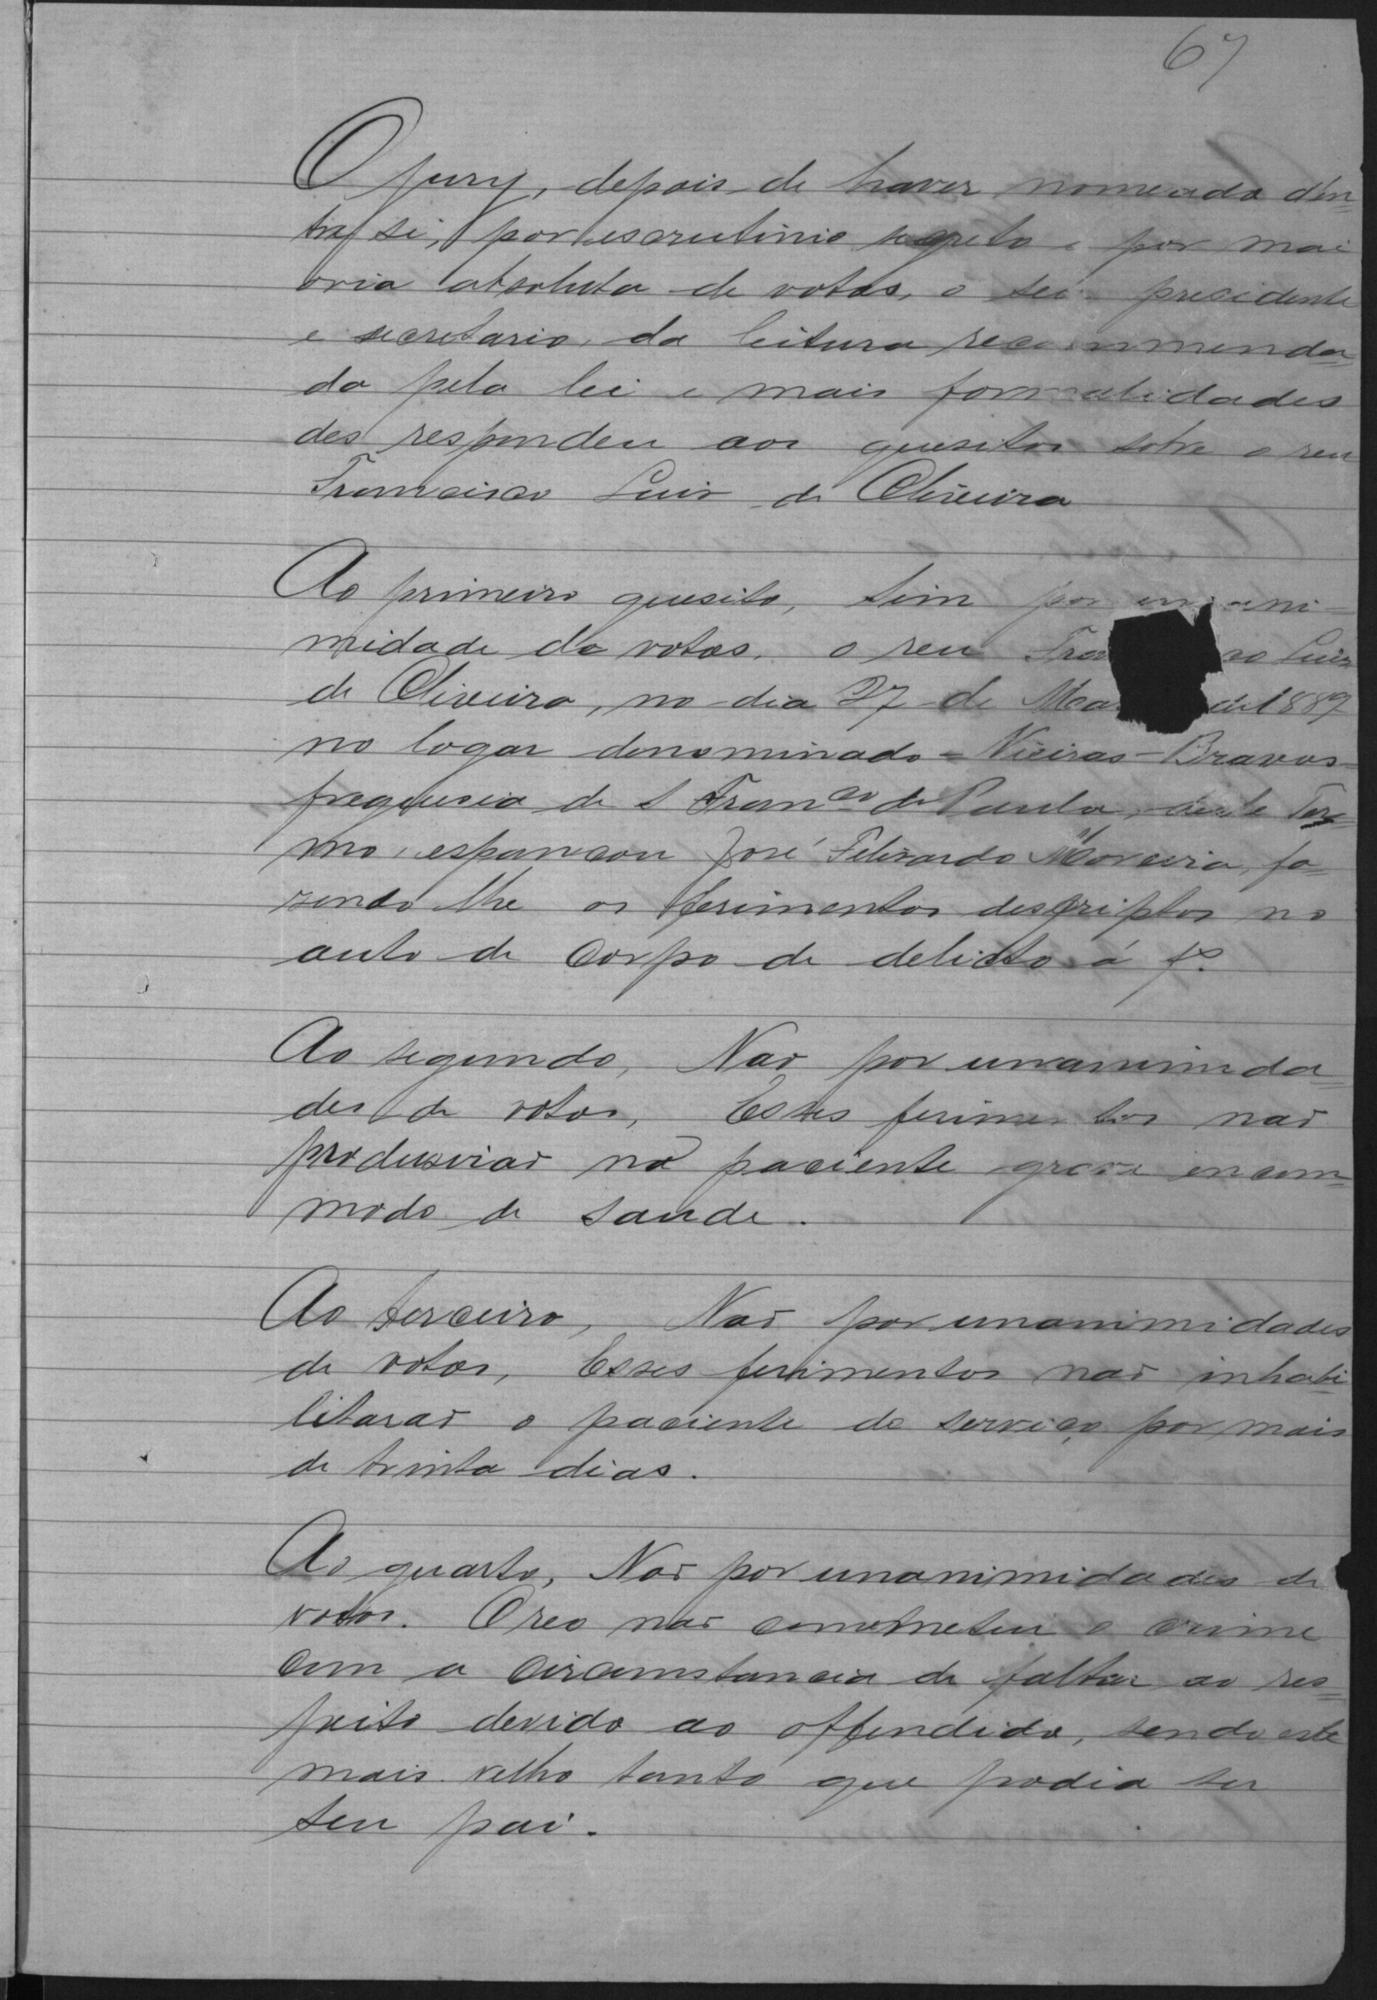 67
O jury, depois de haver nomeado den-
tre si, por escrutinio segreto e por mai
oria absoluta de votos, o seu presidente
e secretario, da leitura recommenda-
da pela lei e mais formalidades
des respondeu aos quesitos sobre o reu
Francisco Luis de Oliveira
Ao primeiro quesito, Sim por unani-
midade de votos. o reu Fran co Luis
de Oliveira, no dia 27 de Ma de 1889
no logar denominado = Vieiras - Bravos -
freguesia de S Franco de Paula, deste Ter-
mo, espancou José Felisardo Moreira, fa-
zendo lhe os ferimentos descriptos no
auto de corpo de delicto á fs.
Ao segundo, Nao por unanimida-
des de votos, Esses ferimentos nao
produsirao no paciente grave encom-
modo de saude.
Ao terceiro, Nao por unanimidades
de votos, Esses ferimentos nao inhabi-
litarao o paciente de serviço por mais
de trinta dias.
Ao quarto, Nao por unanimidades de
votos. O reo nao commeteu o crime
com a circumstancia de faltar ao res-
peito devido ao offendido, sendo este
mais velho tanto que podia ser
seu pai.